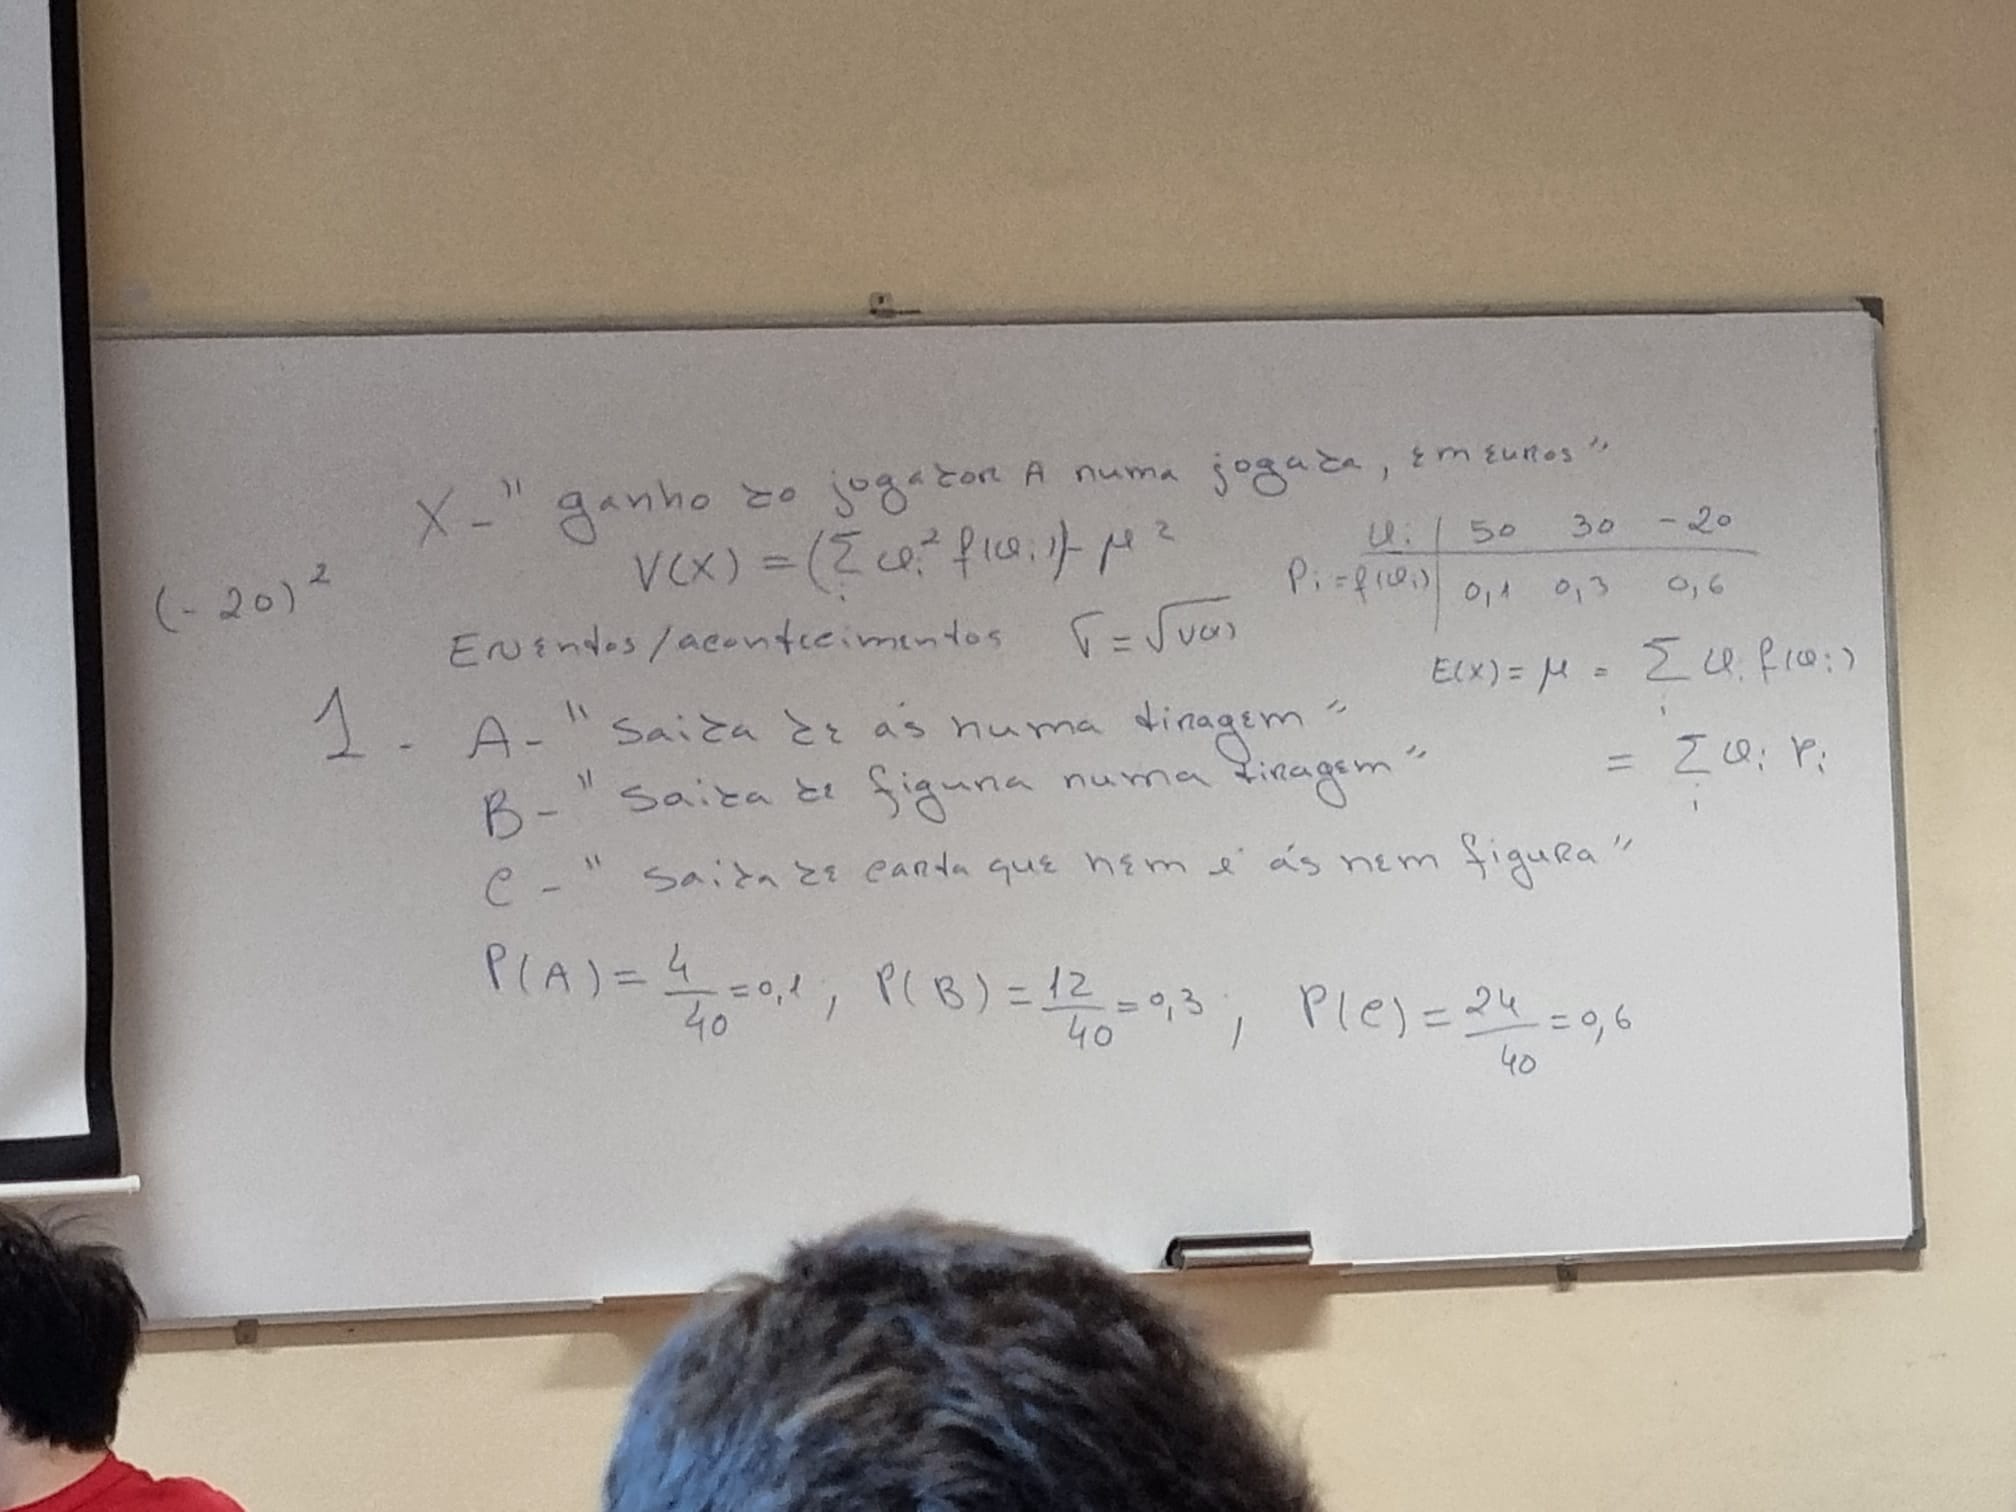 X - " ganho do jogador A numa jogada, em euros "
V(X) = (Σ x_i² f(x_i)) - μ²
i
x_i | 50 30 -20
P_i = f(x_i) | 0,1 0,3 0,6
(-20)²
Eventos / acontecimentos σ = √V(X)
E(X) = μ = Σ x_i f(x_i)
i
= Σ x_i P_i
i
1 - A - " Saída de ás numa tiragem "
B - " Saída de figura numa tiragem "
C - " Saída de carta que nem é ás nem figura "
P(A) = 4/40 = 0,1 , P(B) = 12/40 = 0,3 , P(C) = 24/40 = 0,6